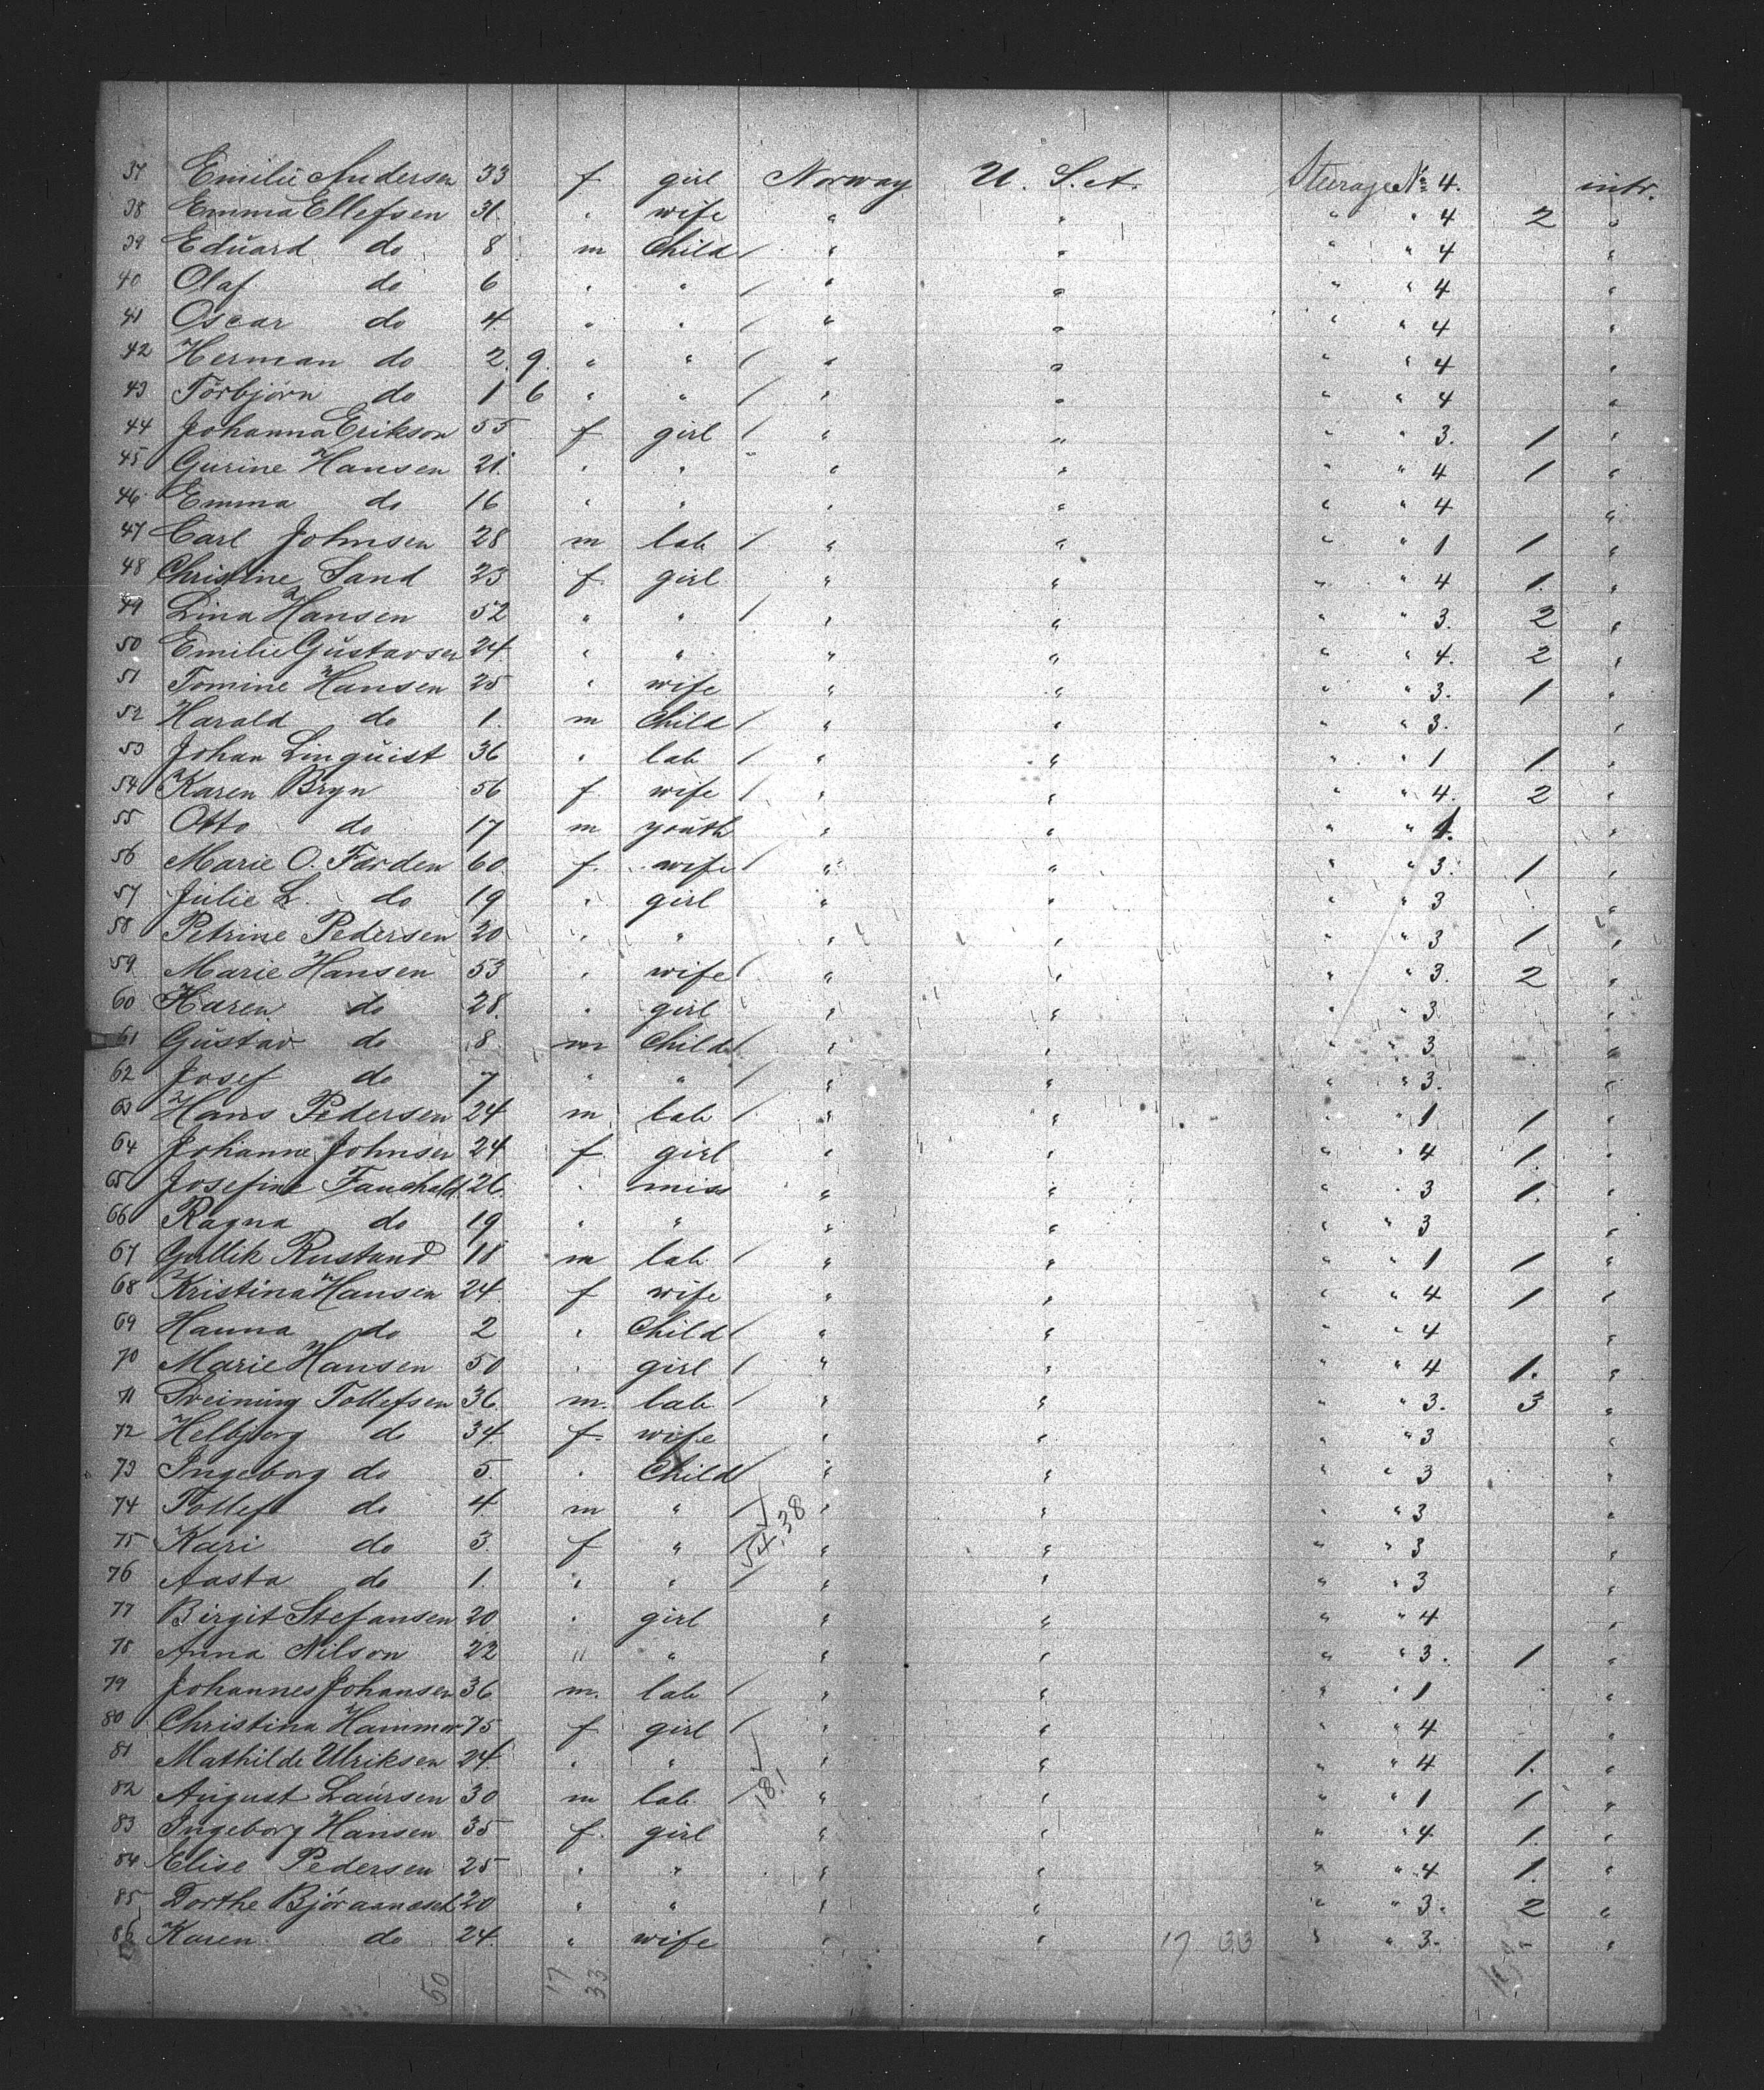 37 Emilie Andersen 33 f girl Norway U. S. A. Steerage No 4. intr.
38 Emma Ellefsen 31. " wife " " " " 4 2 "
39 Eduard do 8 m Child / " " " " 4 "
40 Olaf do 6 " " / " " " " 4 "
41 Oscar do 4. " " / " " " " 4 "
42 Herman do 2. 9. " " / " " " " 4 "
43 Törbjörn do 1 6 " " / " " " " 4 "
44 Johanna Erikson 55 f girl / " " " " 3. 1 "
45 Gurine Hansen 21. " " " " " " 4 1 "
46 Emma do 16 " " " " " " 4 "
47 Carl Johnsen 28 m lab / " " " " 1 1 "
48 Christine Sand 23 f girl " " " " 4 1. "
49 Lina Hansen 52 " " / " " " " 3. 2 "
50 Emilie Gustavsen 24. " " " " " " 4. 2 "
51 Tomine Hansen 25 " wife " " " " 3. 1 "
52 Harald do 1. m Child / " " " " 3. "
53 Johan Linquist 36 " lab / " " " " 1 1. "
54 Karen Bryn 56 f wife / " " " " 4. 2 "
55 Otto do 17 m youth " " " " 1. "
56 Marie O. Færden 60. f. wife / " " " " 3. 1 "
57 Julie L. do 19 " girl " " " " 3 "
58 Petrine Pedersen 20 " " " " " " 3 1 "
59 Marie Hansen 53 " wife / " " " " 3. 2 "
60 Karen do 28. " girl " " " " 3 "
61 Gustav do 8 m Child / " " " " 3 "
62 Josef do 7 " " / " " " " 3. "
63 Hans Pedersen 24. m lab / " " " " 1 1 "
64 Johanne Johnsen 24. f girl " " " " 4 1. "
65 Josefine Fauchald 26. " miss " " " " 3 1. "
66 Ragna do 19 " " " " " " 3 "
67 Gullik Rustand 18 m lab. / " " " " 1 1 "
68 Kristina Hansen 24. f wife " " " " 4 1 "
69 Hanna do 2 " Child / " " " " 4 "
70 Marie Hansen 50 " girl / " " " " 4 1. "
71 Sveinung Tollefsen 36. m. lab. / " " " " 3. 3 "
72 Helbjorg do 34. f. wife " " " " 3 "
73 Ingeborg do 5. " Child / " " " " 3 "
74 Tollef do 4. m " / " " " " 3 "
75 Kari do 3. f " / " " " " 3 "
76 Aasta do 1. " " / " " " " 3 "
77 Birgit Stefansen 20 " girl " " " " 4 "
78 Anna Nilson 22 " " " " " " 3. 1 "
79 Johannes Johansen 36 m. lab / " " " " 1 "
80 Christina Hammer 75 f girl / " " " " 4 "
81 Mathilde Ulriksen 24. " " " " " " 4 1. "
82 August Laursen 30 m lab. / 181 " " " " 1 1. "
83 Ingeborg Hansen 35 f. girl " " " " 4 1. "
84 Elise Pedersen 25 " " " " " " 4 1. "
85 Dorthe 20 " " " " " " 3. 2 "
86 Karen do 24. " wife " " 17 33 " " 3. "
50 17 33